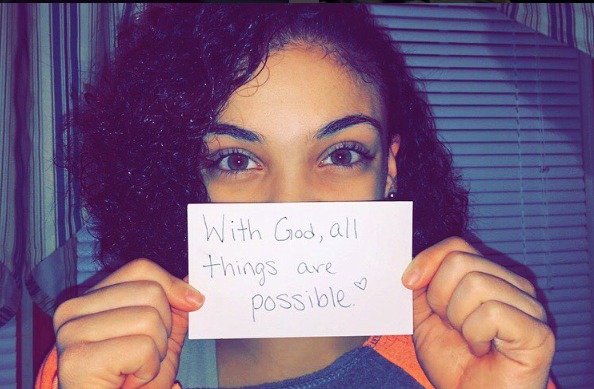 With God, all
things are
possible.♡